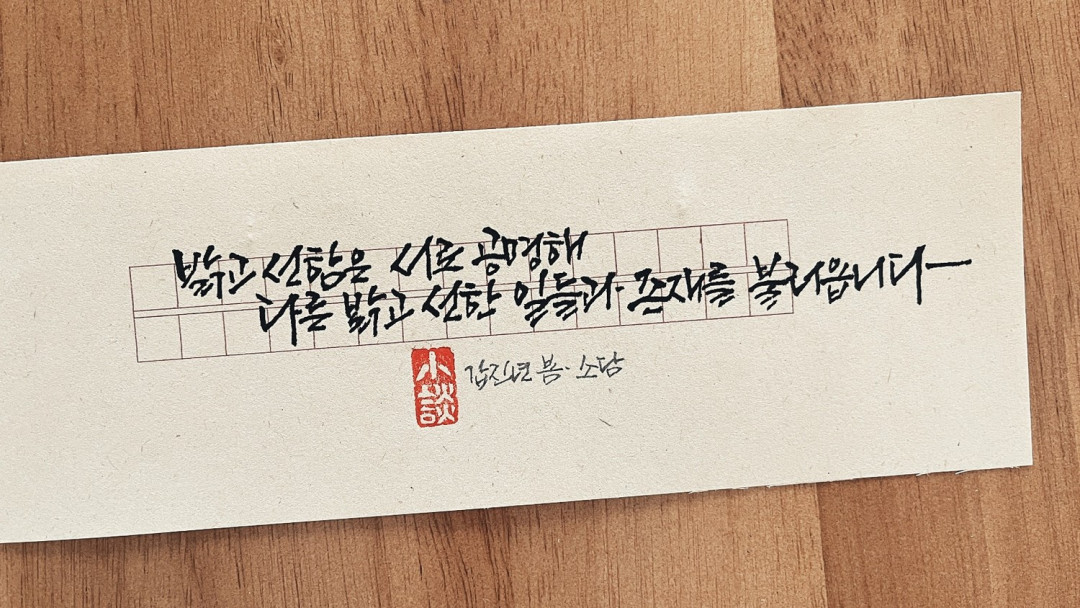 밝고 선함은 서로 공명해
다른 밝고 선한 일들과 존재를 불러옵니다
小談
갑진년 봄. 소담